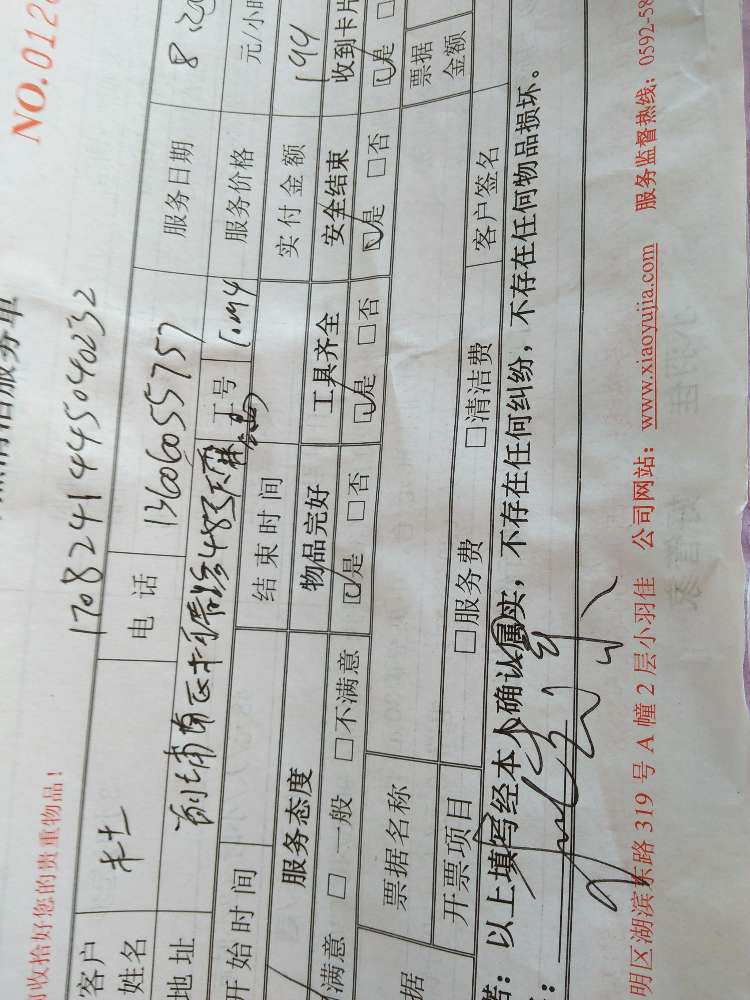 NO.012
清洁服务单
收拾好您的贵重物品!
1708241445040232
客户姓名 杜 电话 13606055757 服务日期 8.
地址 483 服务价格 元/小时
开始时间 结束时间 工号 实付金额 144
服务态度 物品完好 工具齐全 安全结束 收到卡片
满意 □一般 □不满意 □是 □否 □是 □否 □是 □否 □是
票据名称 票据金额
据 开票项目 □服务费 □清洁费 客户签名
:以上填写经本人确认属实,不存在任何纠纷,不存在任何物品损坏。
明区湖滨东路 319 号 A 幢 2 层小羽佳 公司网站:www.xiaoyujia.com 服务监督热线:0592-58